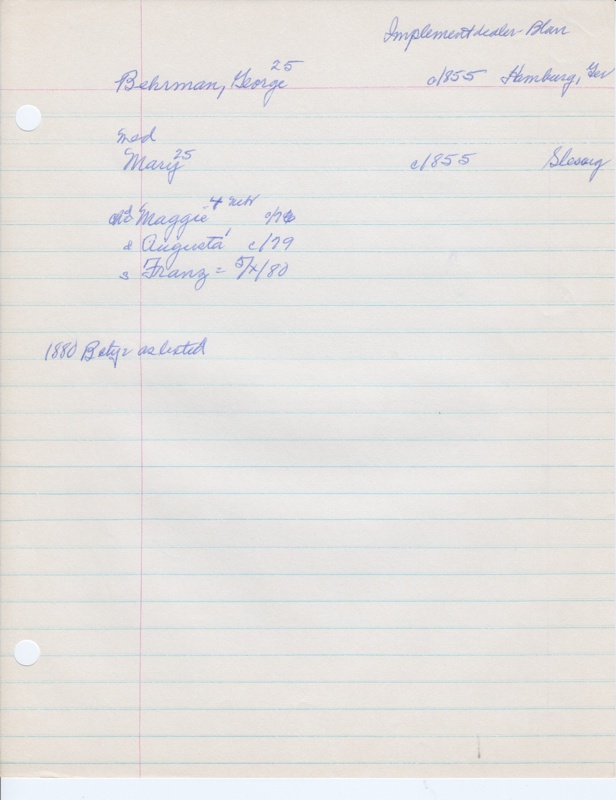 Implement dealer - Blan
Behrman, George 25 c/855 Hamburg, Ger
md
Mary 25 c/855 Slesvig
Maggie 4 c/76
d Augusta 1 c/79
s Franz = 5/x/80
1880 as listed